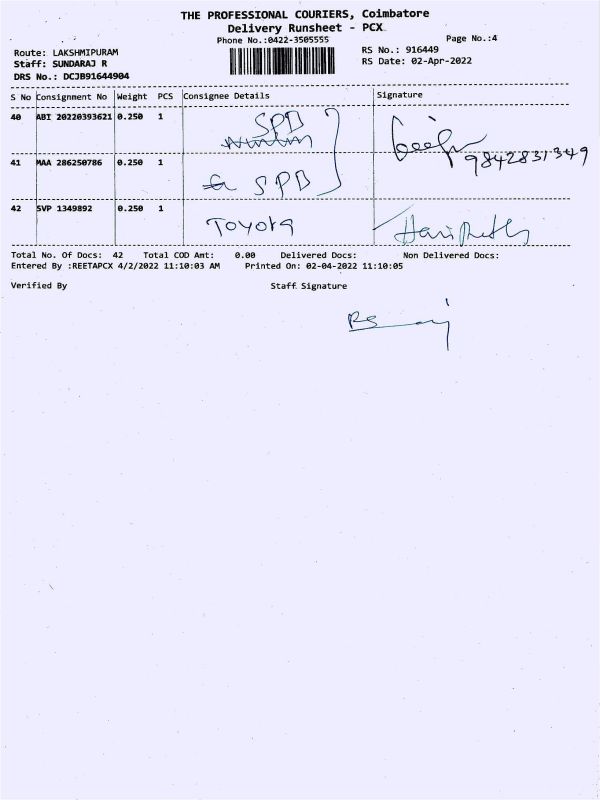 THE PROFESSIONAL COURIERS, Coimbatore
Delivery Runsheet - PCX
Phone No.:0422-3505555
Page No.:4
Route: LAKSHMIPURAM
RS No.: 916449
Staff: SUNDARAJ R
RS Date: 02-Apr-2022
DRS No.: DCJB91644904
S No Consignment No Weight PCS Consignee Details Signature
40 ABI 20220393621 0.250 1 SPD
41 MAA 286250786 0.250 1 SPD
9842831349
42 SVP 1349892 0.250 1 Toyota
Total No. Of Docs: 42 Total COD Amt: 0.00 Delivered Docs: Non Delivered Docs:
Entered By :REETAPCX 4/2/2022 11:10:03 AM Printed On: 02-04-2022 11:10:05
Verified By Staff Signature